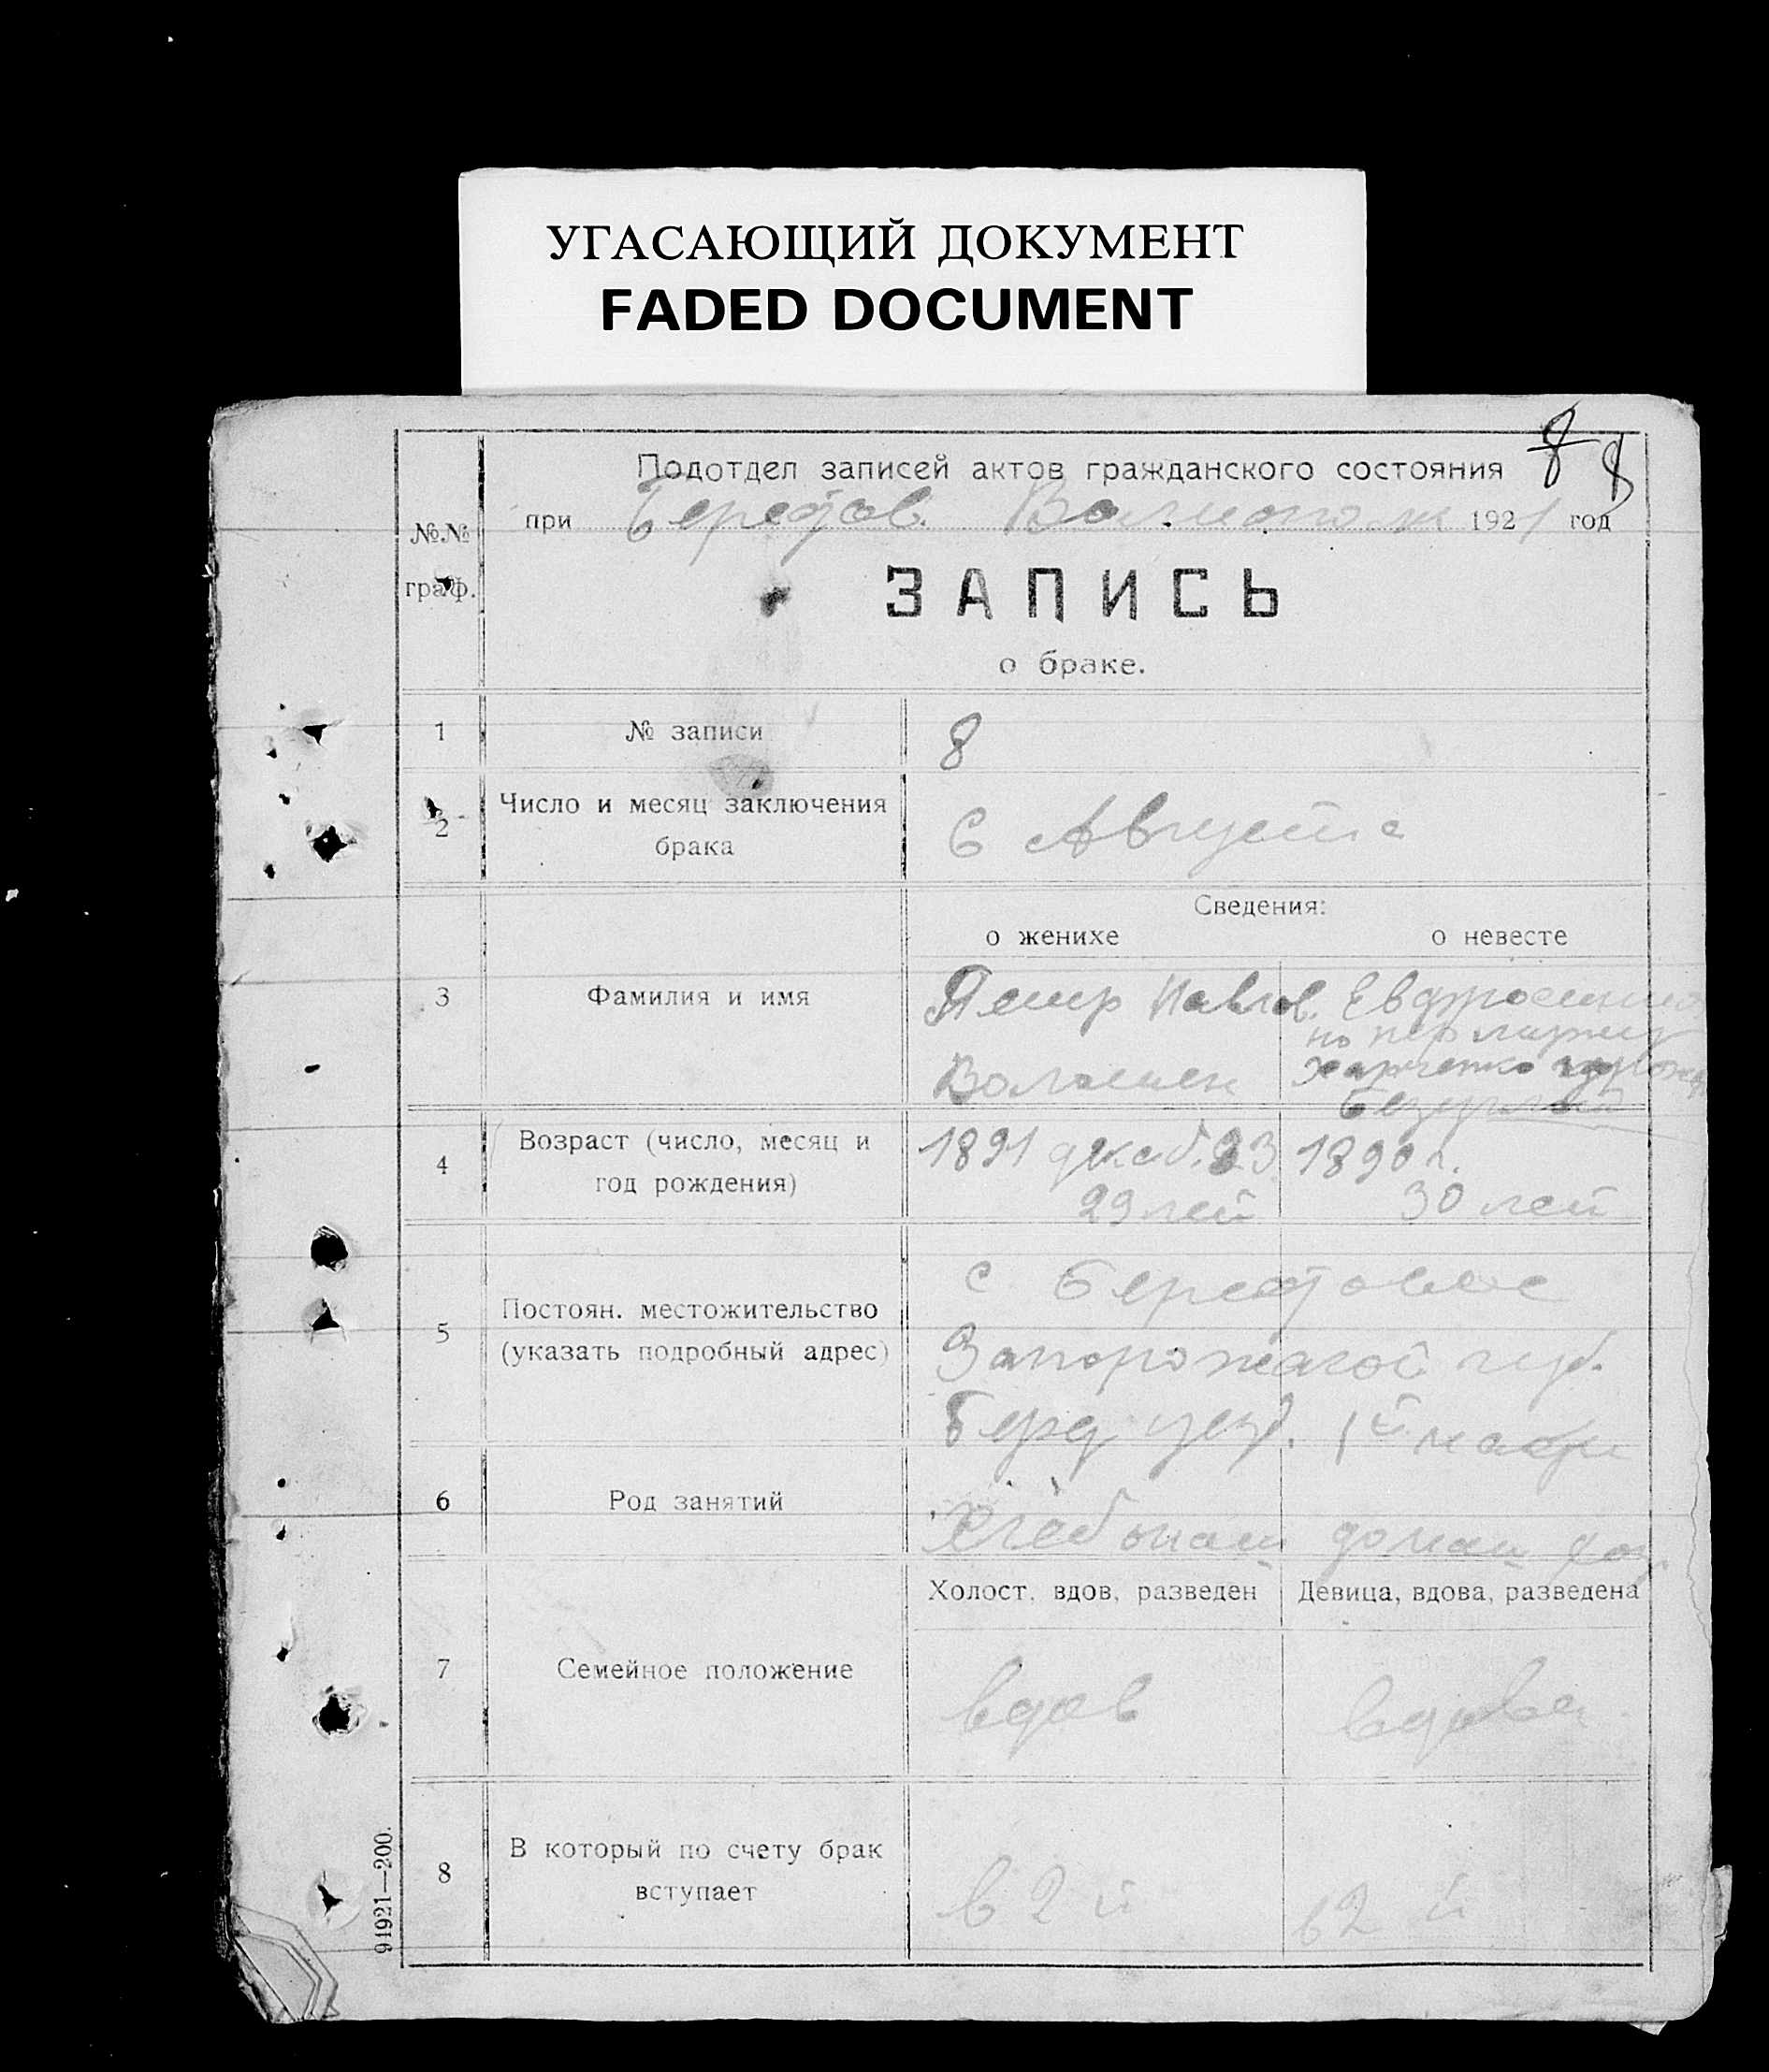 УГАСАЮЩИЙ ДОКУМЕНТ
FADED DOCUMENT
8 8
Подотдел записей актов гражданского состояния
при Берестов. 1921 год
№№
граф.
ЗАПИСЬ
о браке.
1 № записи 8
2 Число и месяц заключения
брака
6 Августа
Сведения:
о женихе о невесте
3 Фамилия и имя
Петр Павлов. Евдросинию
по пер мужу
Харченко
Волошен
4 Возраст (число, месяц и
год рождения)
1891 декаб. 23 1890 г.
29 лет 30 лет
5 Постоян. местожительство
(указать подробный адрес)
с Берестовое
Запорожской губ.
Берд уезд. 1й
6 Род занятий
Хлебопаш домаш хоз.
Холост, вдов, разведен Девица, вдова, разведена
7 Семейное положение
вдов вдова
8 В который по счету брак
вступает
в 2 й в 2 й
91921—200.